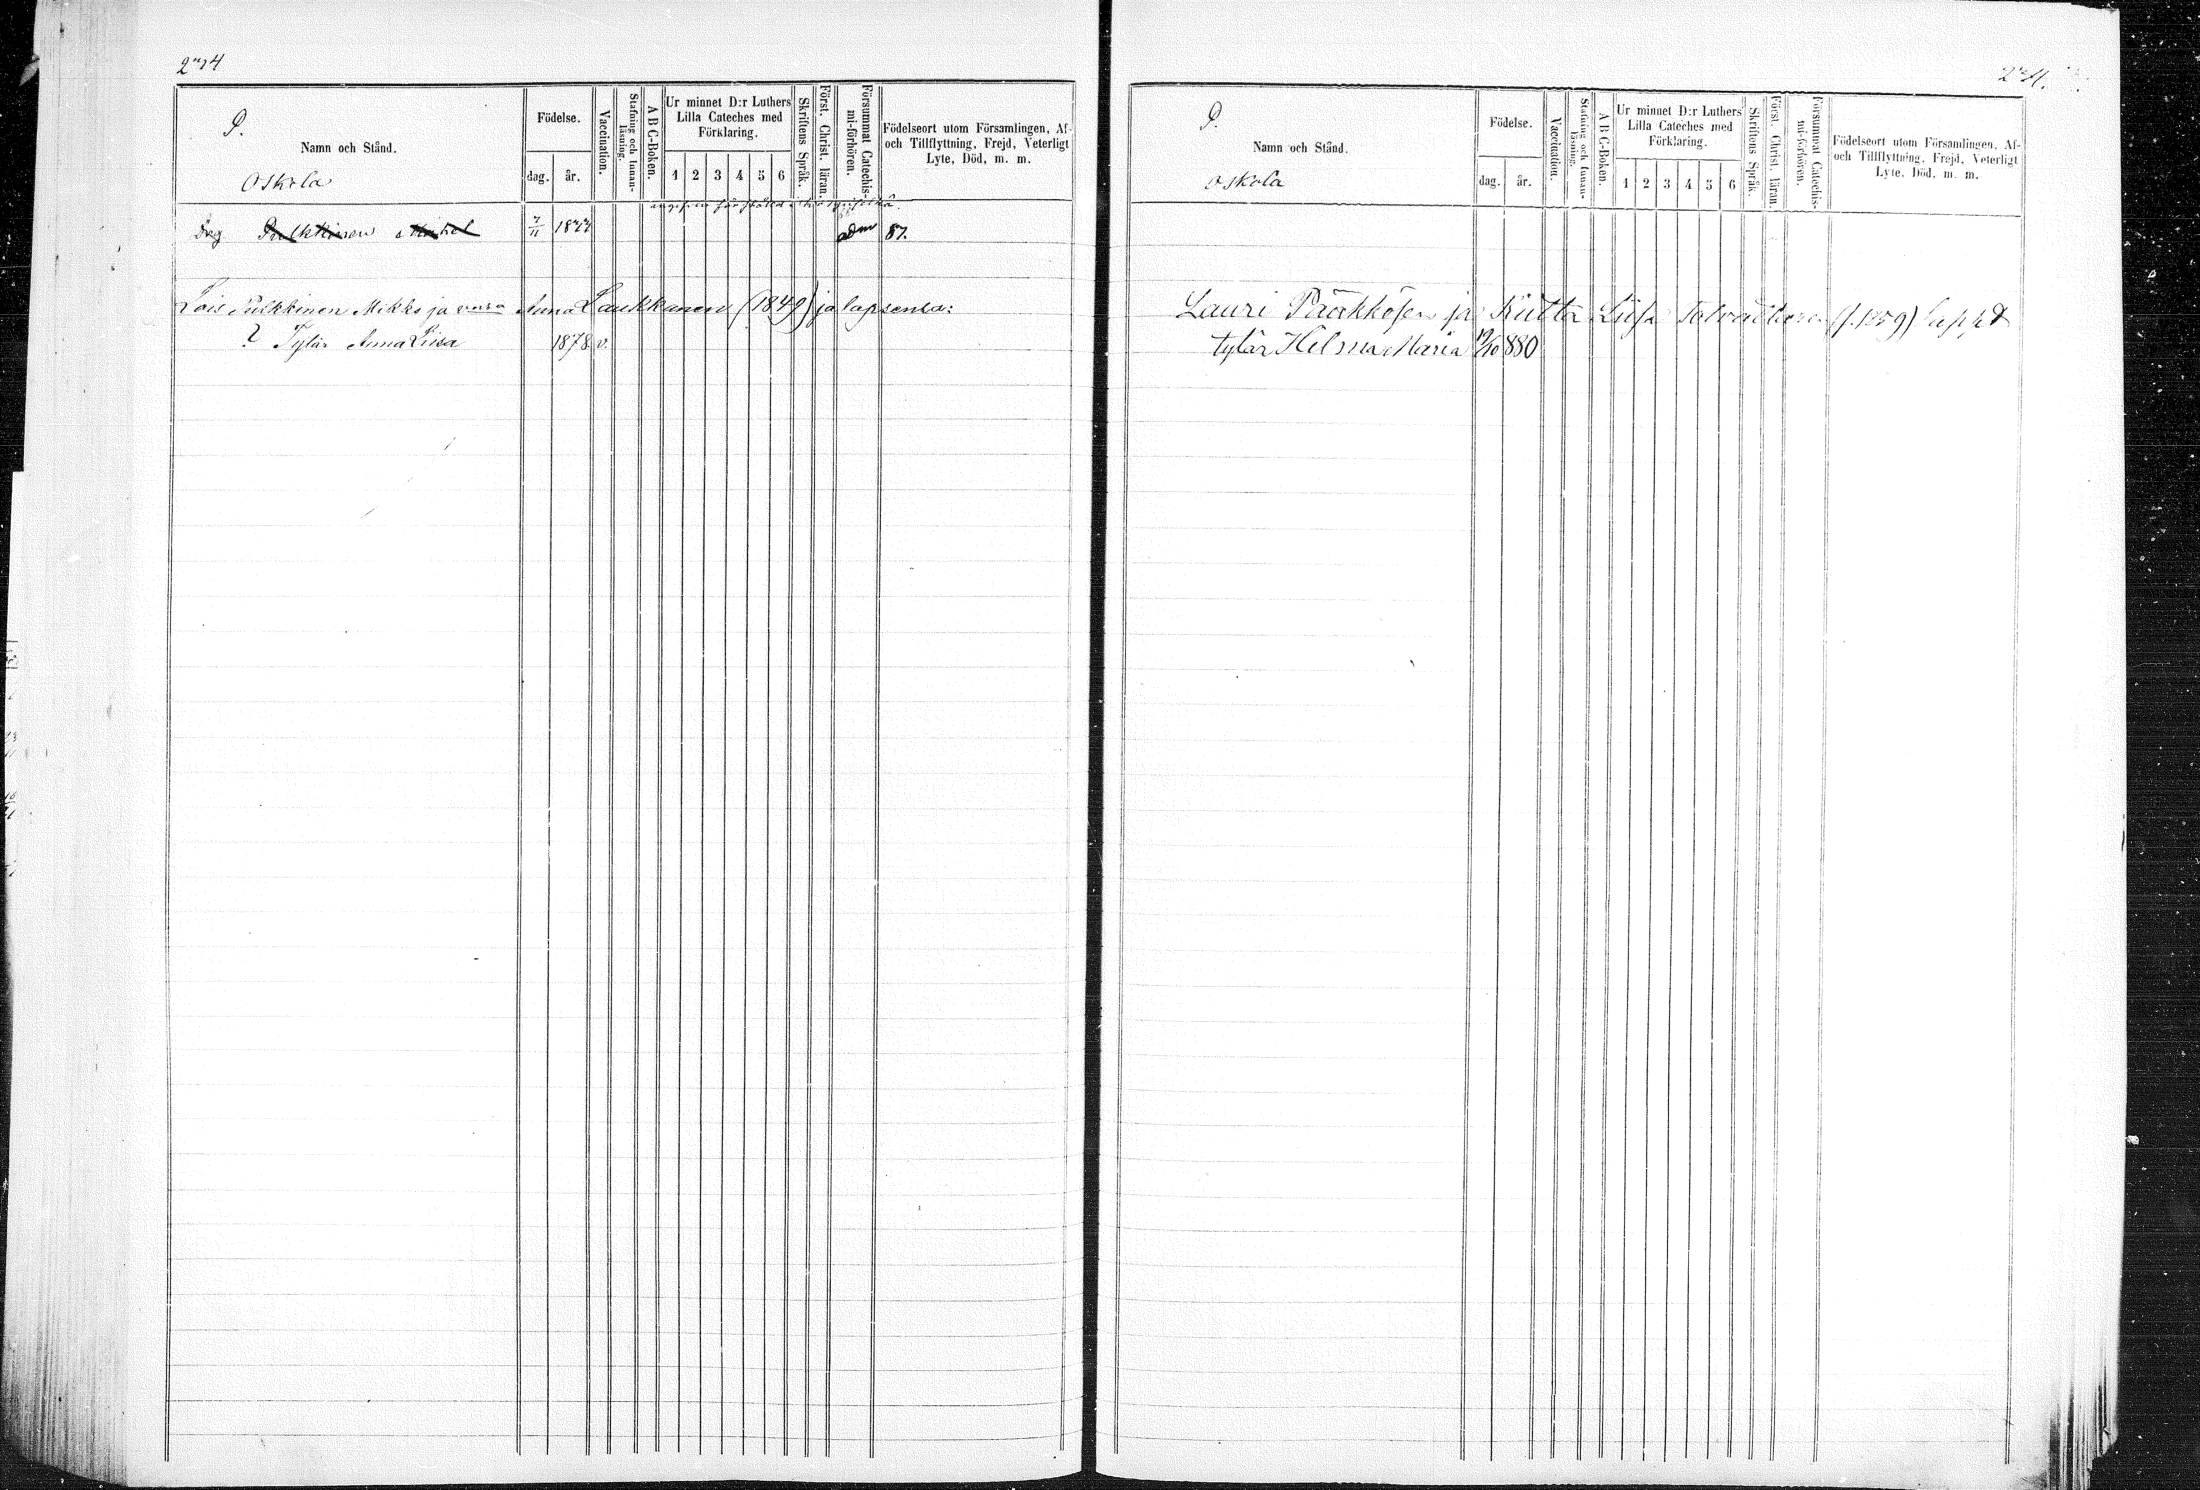 P.
Namn och Stånd.
Oskola
Födelse.
dag. år.
Vaccination.
Stafning och Innan-läsning.
A B C-Boken.
Ur minnet D:r Luthers
Lilla Cateches med
Förklaring.
1 2 3 4 5 6
Skriftens Språk.
Först. Christ. läran.
Försummat Catechis-mi-förhören.
Födelseort utom Församlingen, Af-
och Tillflyttning, Frejd, Veterligt
Lyte, Död, m. m.
Drg Pulkkinen Mikel 7/11 1877 adm 87.
Lois Pulkkinen Mikko ja Anna Laukkanen (1849) ja lapsensa:
? Tytär Anna Liisa 1878 v.
P.
Namn och Stånd.
Oskola
Födelse.
dag. år.
Vaccination.
Stafning och Innan-läsning.
A B C-Boken.
Ur minnet D:r Luthers
Lilla Cateches med
Förklaring.
1 2 3 4 5 6
Skriftens Språk.
Först. Christ. läran.
Försummat Catechis-mi-förhören.
Födelseort utom Församlingen, Af-
och Tillflyttning, Frejd, Veterligt
Lyte, Död, m. m.
Lauri Pääkkösen ja Liisa (f. 1859)
tytär Hilma Maria 19/10 880